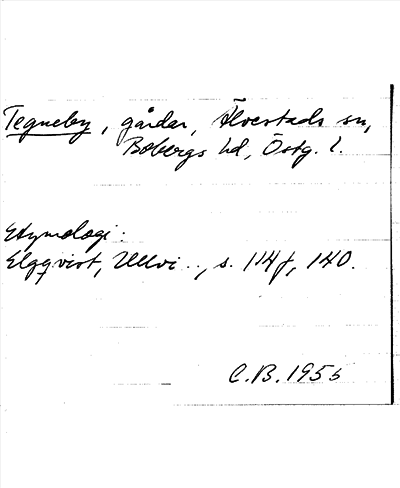 Tegneby, gårdar, Älvestads sn,
Bobergs hd, Östg. l.
Etymologi:
Elgqvist, Ullvi.., s. 114f, 140.
C.B. 1955